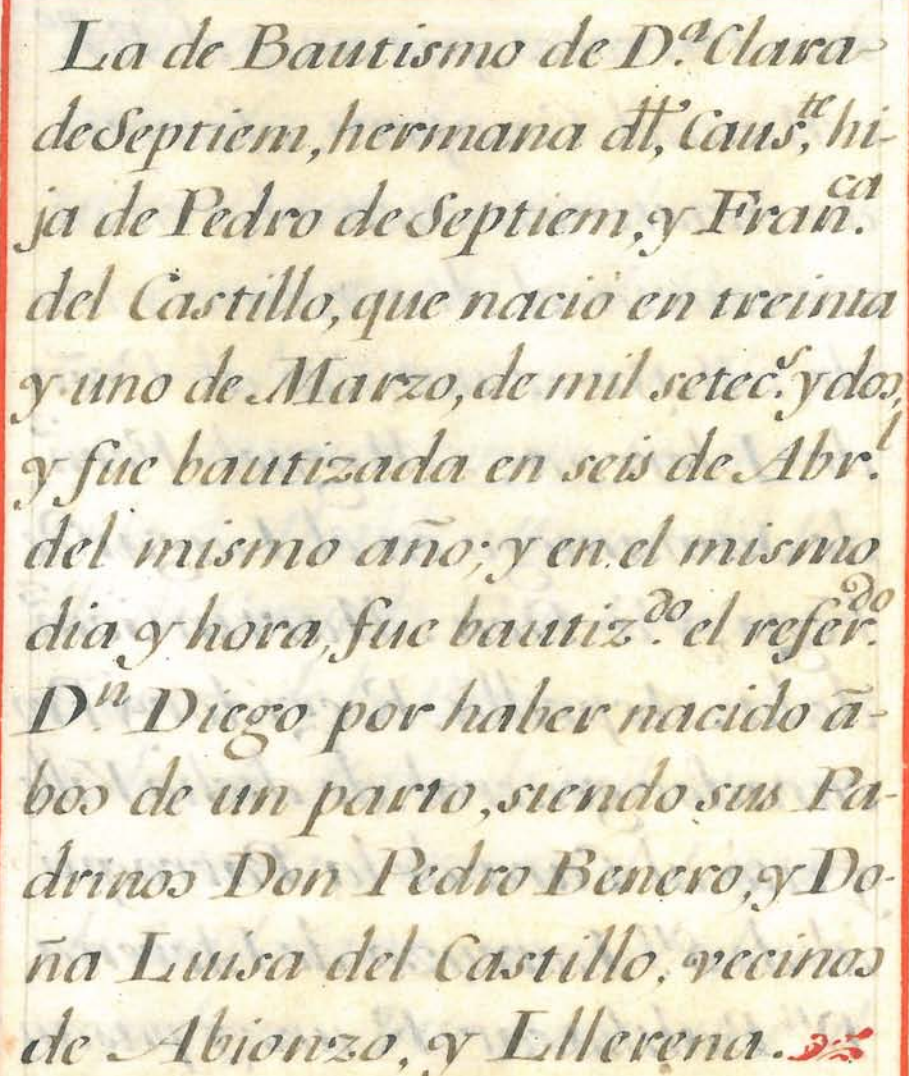 La de Bautismo de D.ª Clara
de Septiem, hermana dtt, Caus,te hi-
ja de Pedro de Septiem, y Fran.ca
del Castillo, que nació en treinta
y uno de Marzo, de mil setec.s y dos,
y fue bautizada en seis de Abr.l
del mismo año; y en el mismo
dia y hora, fue bautiz.do el refer.do
D.n Diego por haber nacido ā-
bos de un parto, siendo sus Pa-
drinos Don Pedro Benero, y Do-
ña Luisa del Castillo, vecinos
de Abionzo, y Lllerena.